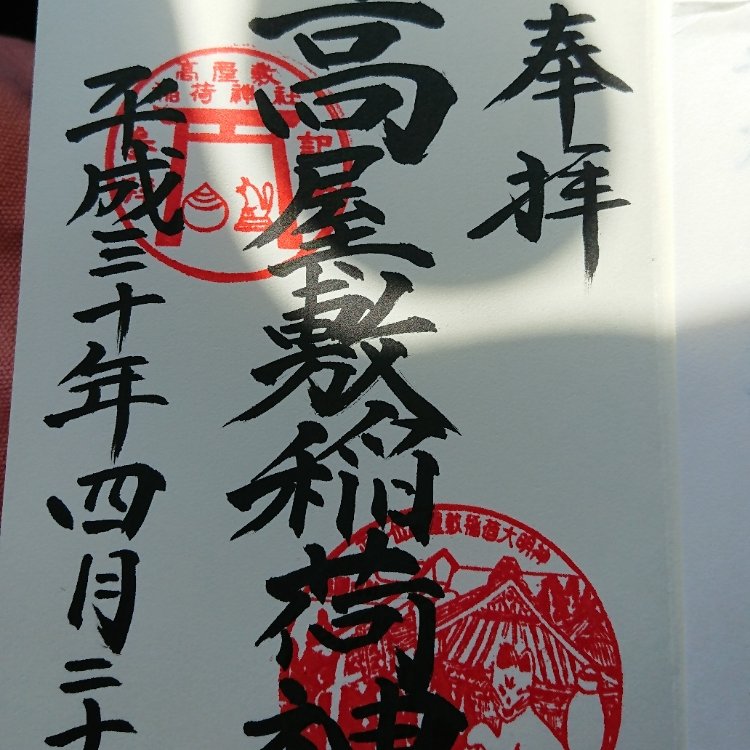 奉拝
高屋敷稲荷神
平成三十年四月二十
高屋敷
稲荷神社
屋敷稲荷大明神